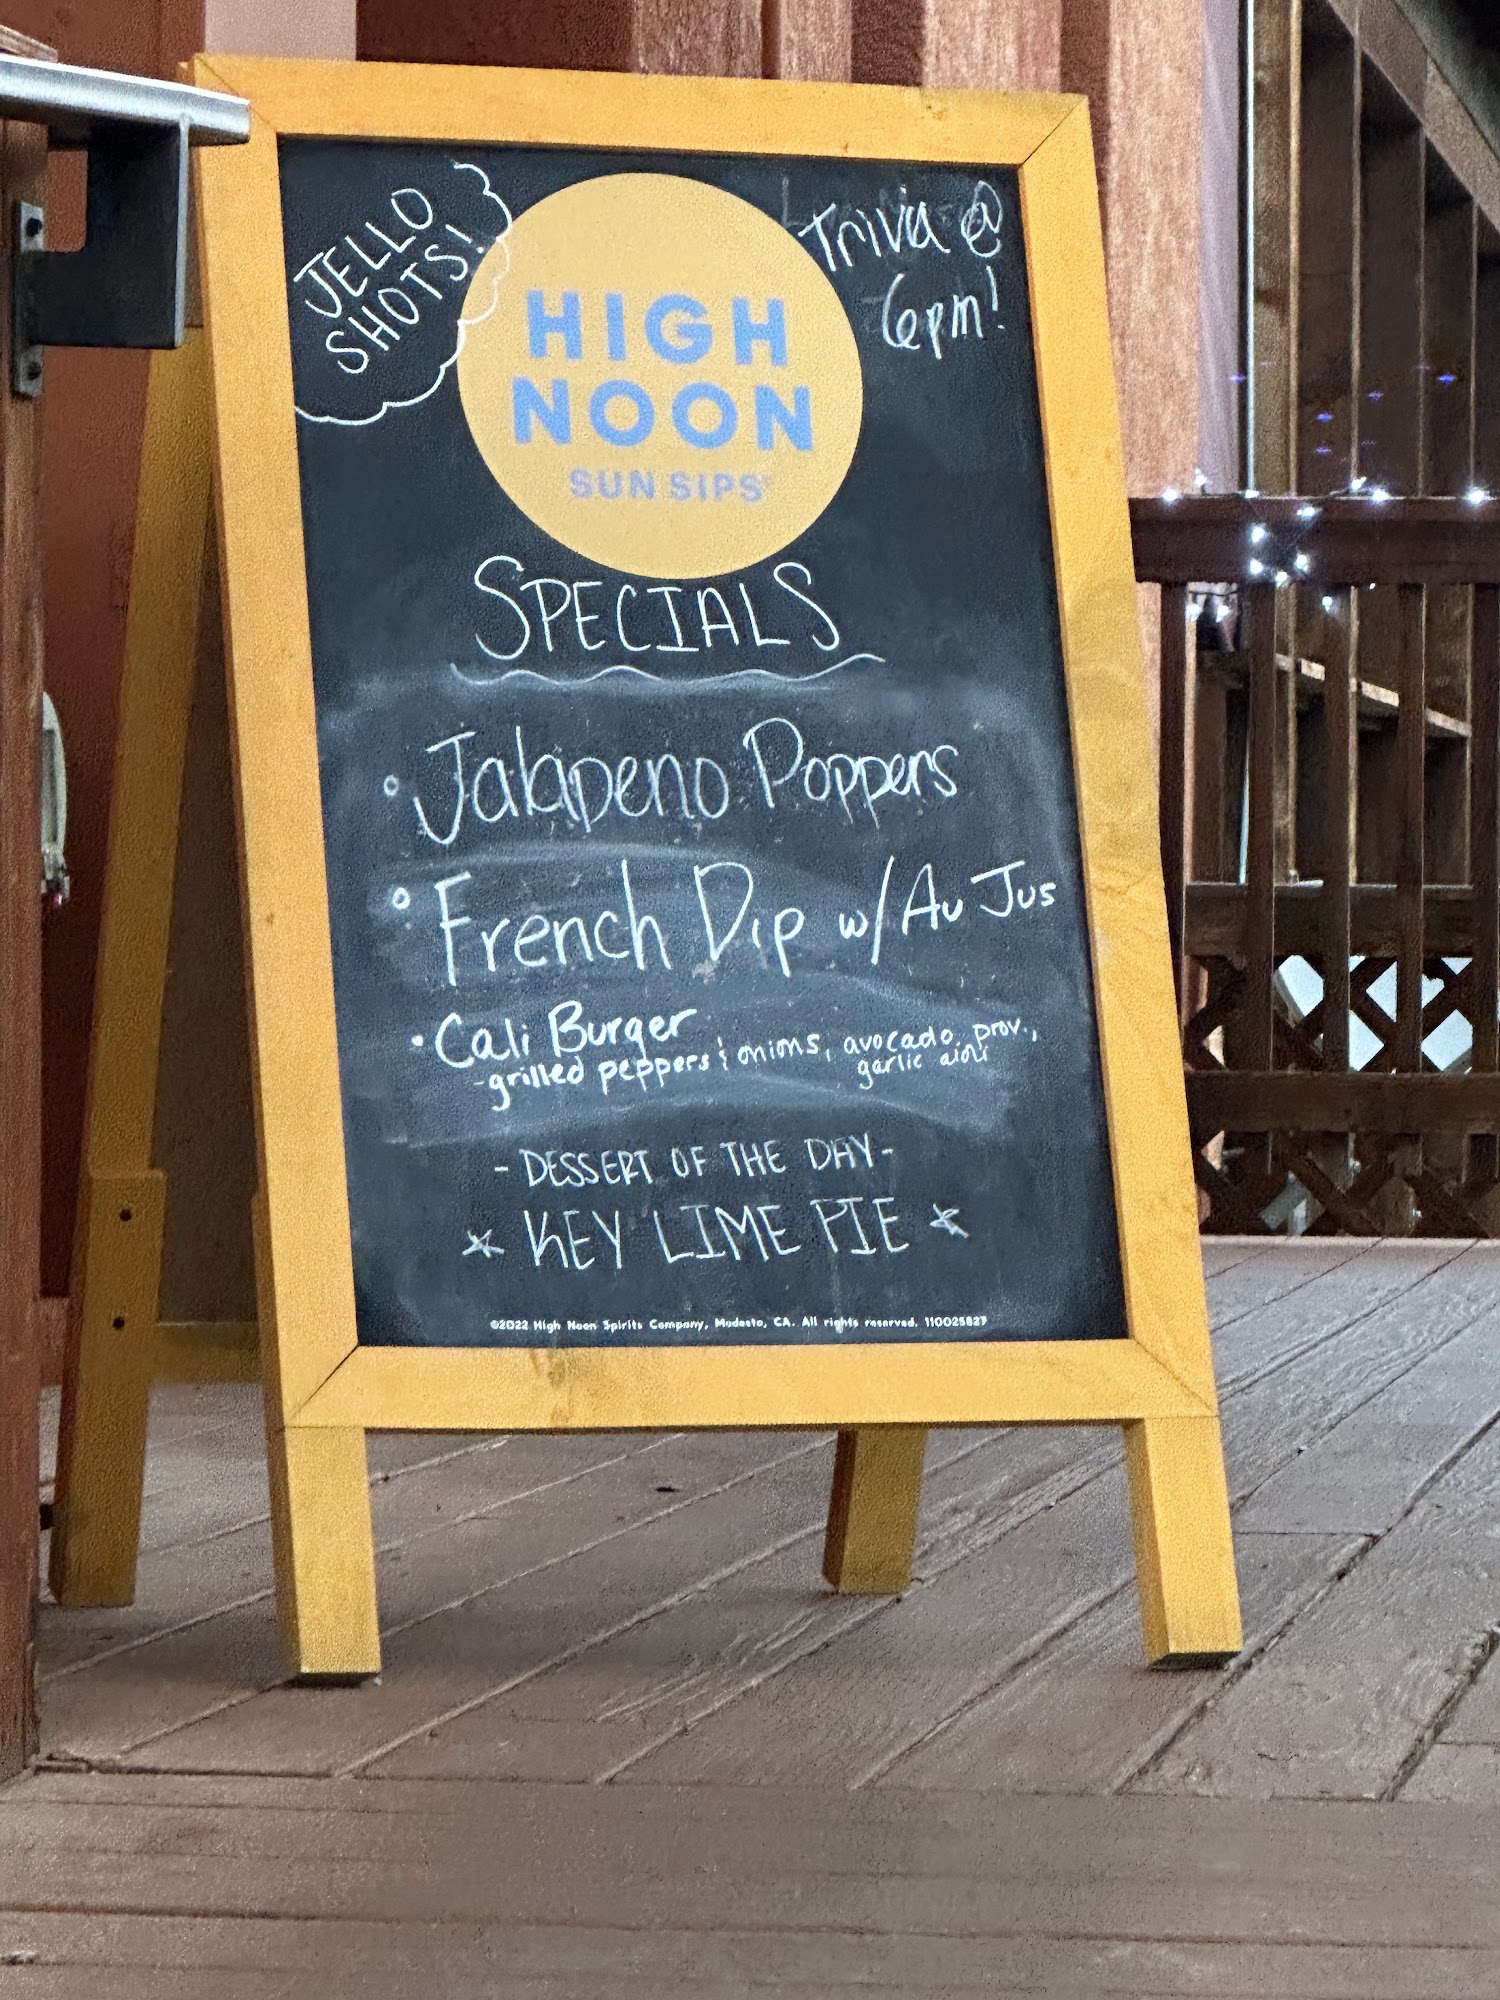 JELLO
SHOTS!
Trivia @
6pm!
HIGH
NOON
SUN SIPS
SPECIALS
° Jalapeno Poppers
° French Dip w/ Au Jus
• Cali Burger
-grilled peppers & onions, avocado, prov.,
garlic aioli
- DESSERT OF THE DAY -
☆ KEY LIME PIE ☆
©2022 High Noon Spirits Company, Modesto, CA. All rights reserved. 110025827